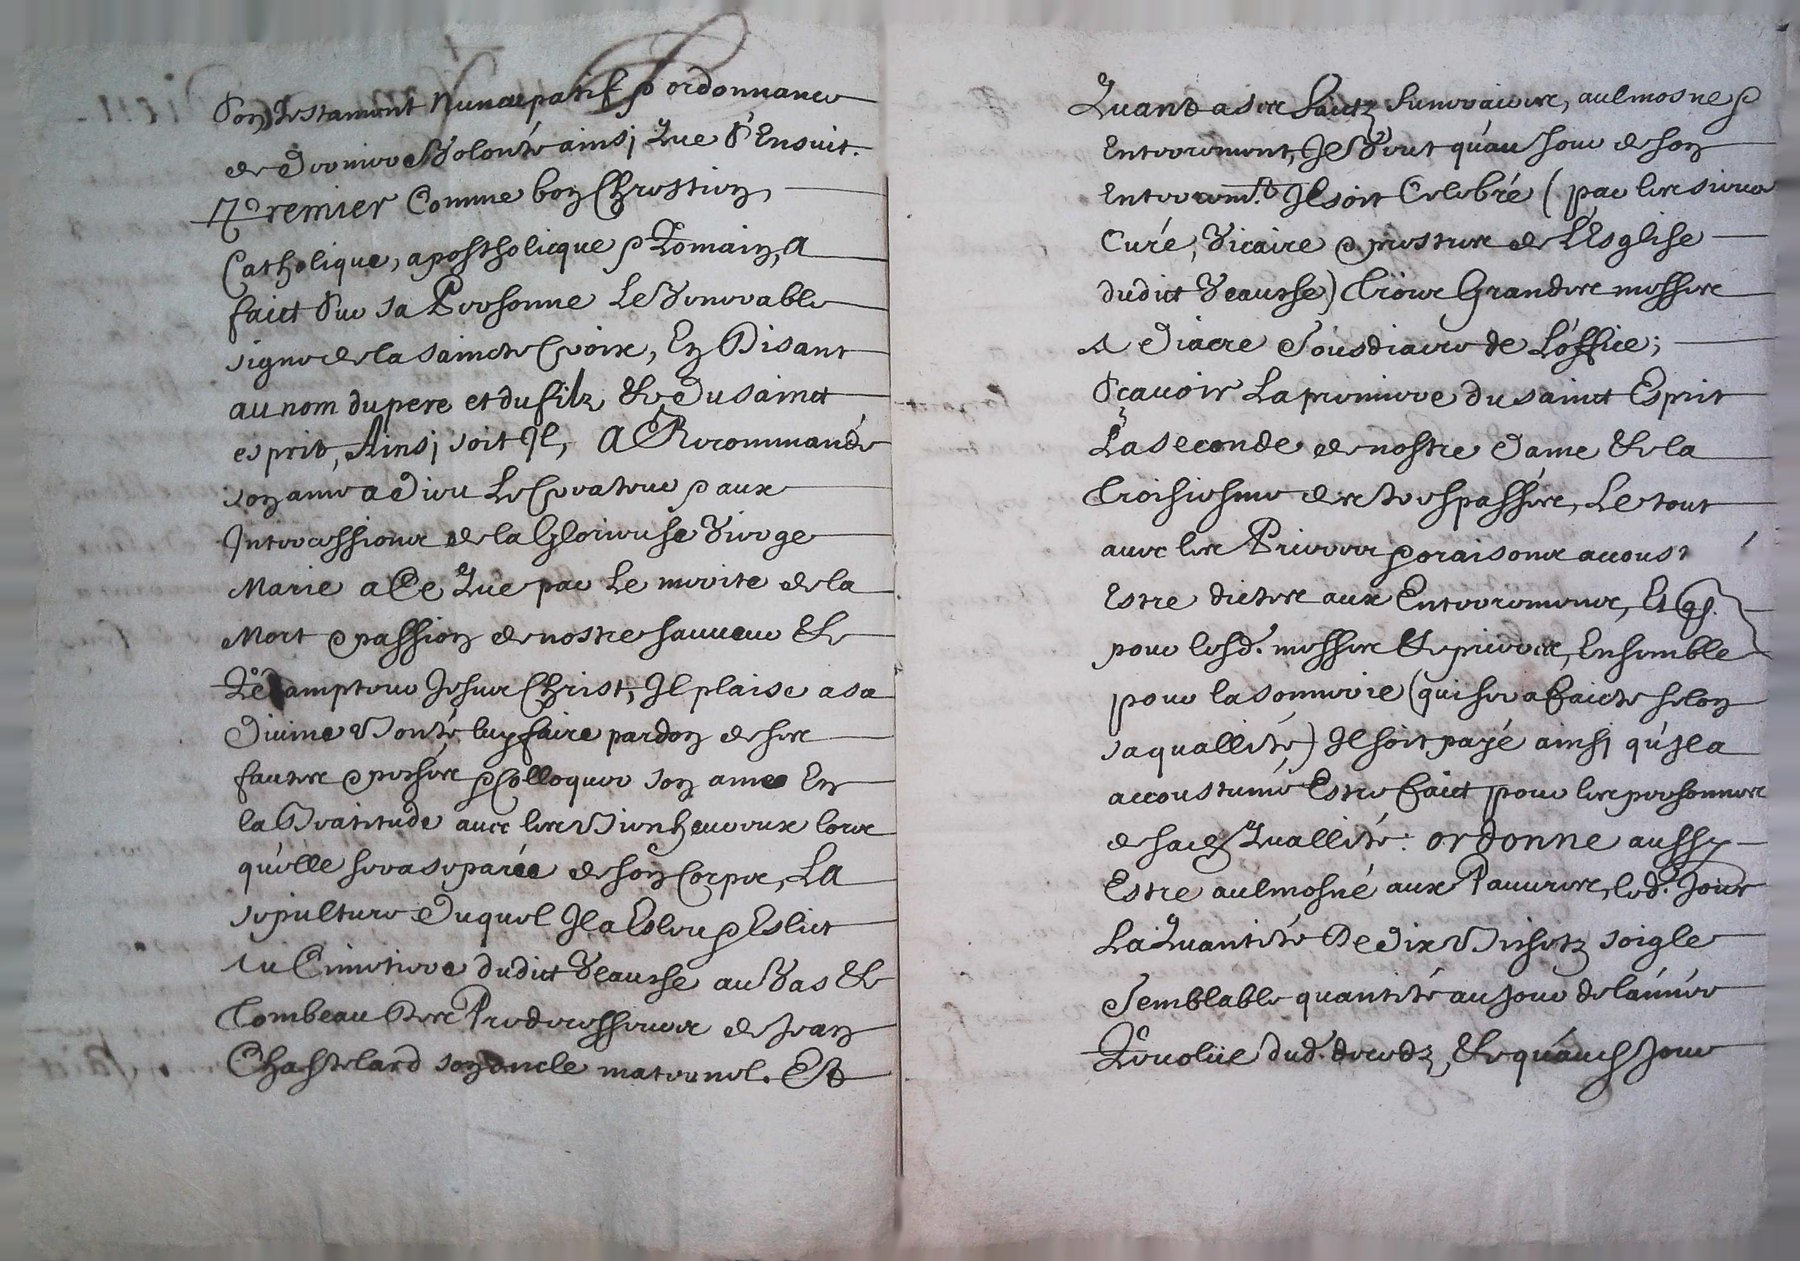 Son Testament Nuncupatif & ordonnance
de Derniere Volonté ainsi Que S'Ensuit.
Premier Comme bon Chrestien,
Catholique, apostholicque & Romain, A
faict Sur sa Personne Le Venerable
signe de la saincte Croix, En Disant
au nom du pere et du filz & Du sainct
esprit, Ainsi soit Il, A Recommandé
son ame a Dieu Le Createur & aux
Intercessions de la Glorieuse Vierge
Marie a Ce Que par Le merite de la
Mort & passion de nostre sauveur &
Redampteur Jesus Christ, Il plaise a sa
Divine Bonté luy faire pardon de ses
fautes & pechés & Colloquer son ame En
la Beatitude avec les Bienheureux lors
qu'elle sera separée de son Corps, La
sepulture Duquel Il a Esleu & Eslict
Au Cimetiere dudict Veausse au Vas &
Tombeau Des Predecesseurs de Jean
Chastelard son oncle maternel. Et
Quant a ses faictz funeraires, aulmosne &
Enterrement, Il Veut qu'au Jour de son
Enterrem.t Il soit Celebré (par les sieurs
Curé, Vicaire & prestres de L'Esglise
dudict Veausse) Trois Grandes messes
A Diacre Sousdiacre de L'office;
Sçavoir La premiere Du sainct Esprit
La seconde de nostre Dame & la
Troisiesme des trespassés, Le tout
avec les Prieres & oraisons accoust
Estre dictes aux Enterremens, Et q.
pour lesd. messes & prieres, Ensemble
pour la sonnerie (qui sera faicte selon
sa quallité) Il soit payé ainsi qu'Il a
accoustumé Estre faict pour les personnes
de sad. Quallité. ordonne aussy
Estre aulmosné aux Pauvres, led. Jour
La Quantité De Dix Bichetz soigle
Semblable quantité au Jour de l'année
Revolüe dud. decedz, & qu'aud. Jour